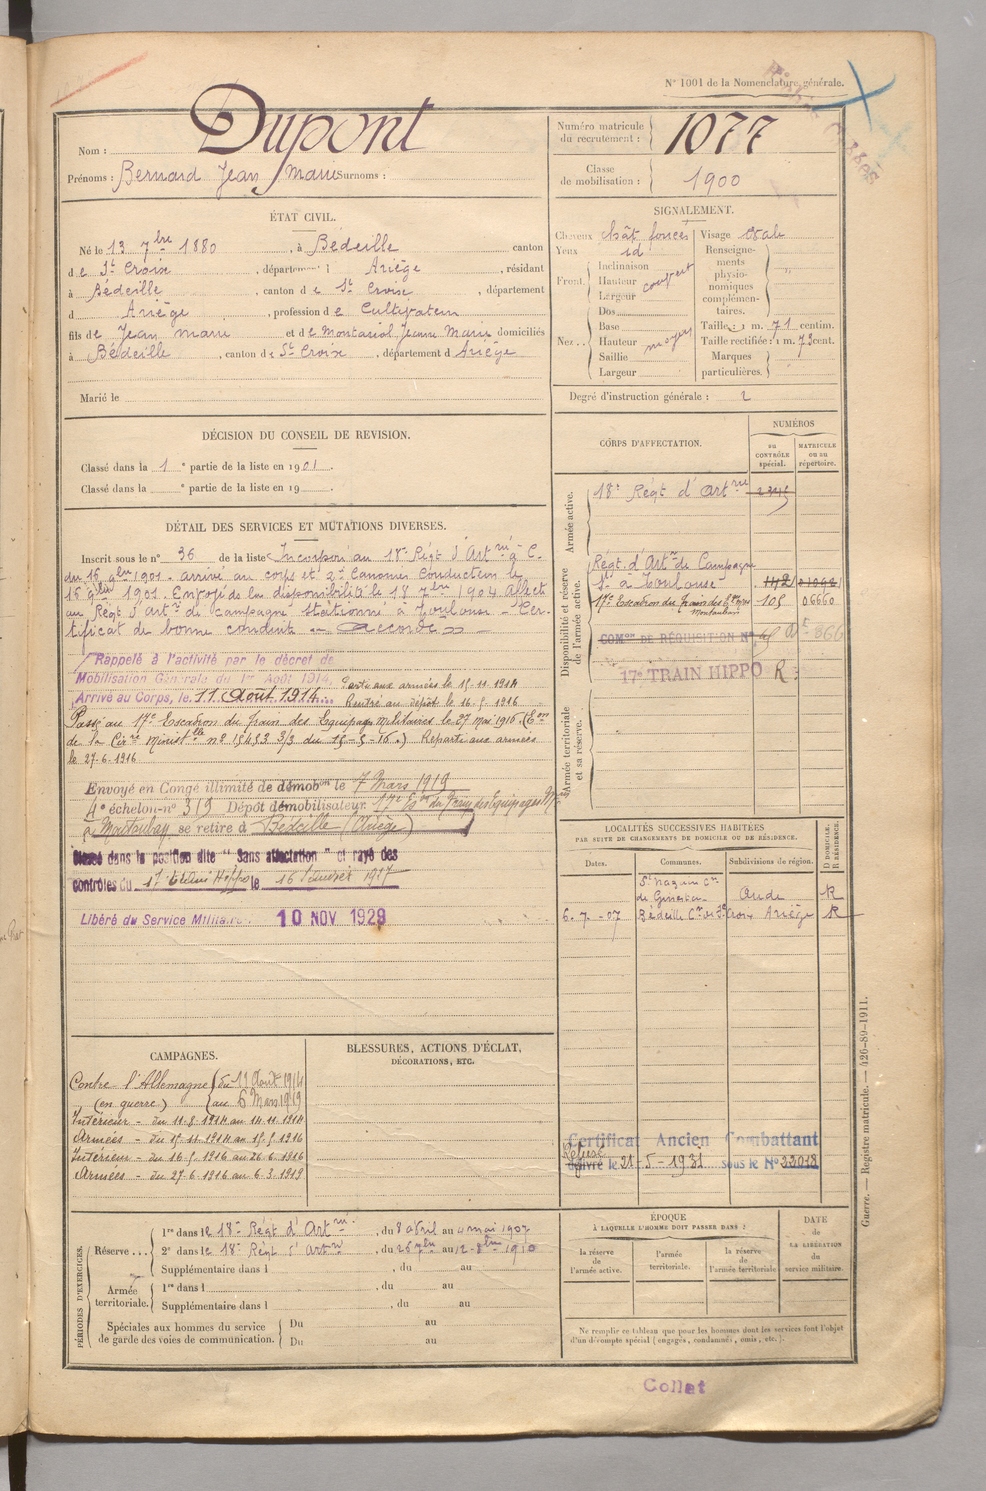 N° 1001 de la Nomenclature générale.
Nom : Dupont
Prénoms : Bernard Jean Marie Surnoms :
Numéro matricule du recrutement : 1077
Classe de mobilisation : 1900
ÉTAT CIVIL.
Né le 13 7bre 1880, à Bédeille canton
de St Croix, département Ariège, résidant
à Bédeille, canton de St Croix, département
d Ariège, profession de Cultivateur
fils de Jean Marie et de Montariol Jeanne Marie domiciliés
à Bédeille, canton de St Croix, département d Ariège
Marié le
SIGNALEMENT.
Cheveux chât foncés
Yeux id
Front. Inclinaison
Hauteur couvert
Largeur
Nez .. Dos
Base
Hauteur moyen
Saillie
Largeur
Visage ovale
Renseignements physionomiques complémentaires.
Taille : 1 m. 71 centim.
Taille rectifiée : 1 m. 73 cent.
Marques particulières.
Degré d'instruction générale : 2
DÉCISION DU CONSEIL DE REVISION.
Classé dans la 1 e partie de la liste en 1901.
Classé dans la e partie de la liste en 19 .
DÉTAIL DES SERVICES ET MUTATIONS DIVERSES.
Inscrit sous le n° 36 de la liste Incorporé au 18e Régt d'Artrie à C.
du 16 9bre 1901. arrivé au corps et 2e Canonnier Conducteur le
16 9bre 1901. Envoyé de la disponibilité le 18 7bre 1904 Affecté
au Régt d'Artie de Campagne stationné à Toulouse - Cer-
tificat de bonne conduite " Accordé "
Rappelé à l'activité par le décret de
Mobilisation Générale du 1er Août 1914,
Arrivé au Corps, le 11 Août 1914. Parti aux armées le 15.11.1914
Rentré au dépôt le 16.5.1916
Passé au 17e Escadron du train des Equipages militaires le 27 mai 1916. (Eon
de la Cirre Ministlle n° 15453 3/3 du 15-5-16.) Reparti aux armées
le 27.6.1916
Envoyé en Congé illimité de démobon le 7 Mars 1919
4e échelon-n° 319 Dépôt démobilisateur 17e Eon du Train des Equipages Mres
à Montauban se retire à Bédeille (Ariège)
Classé dans la position dite " Sans affectation " et rayé des
contrôles du 17e train Hippo le 16 1927
Libéré du Service Militaire 10 NOV 1929
CORPS D'AFFECTATION.
NUMÉROS
au CONTRÔLE spécial.
MATRICULE ou au répertoire.
Armée active.
18e Régt d'Artrie
Disponibilité et réserve de l'armée active.
Régt d'Artrie de Campagne
à Toulouse
17e Escadron du train des Eqages Mres 105 06660
Montauban
COMon DE RÉQUISITION N°
17e TRAIN HIPPO R
Armée territoriale et sa réserve.
LOCALITÉS SUCCESSIVES HABITÉES
PAR SUITE DE CHANGEMENTS DE DOMICILE OU DE RÉSIDENCE.
Dates. Communes. Subdivisions de région. D DOMICILE. R RÉSIDENCE.
St Nazaire Con
de Ginestas Aude R
6.7-07 Bédeille Con de Ste Croix Ariège R
CAMPAGNES.
Contre l'Allemagne du 11 Août 1914
(en guerre) au 6 Mars 1919
Intérieur - du 11-8-1914 au 14-11-1914
Armées - du 15-11-1914 au 15-5-1916
Intérieur - du 16-5-1916 au 26-6-1916
Armées - du 27-6-1916 au 6-3-1919
BLESSURES, ACTIONS D'ÉCLAT,
DÉCORATIONS, ETC.
Certificat Ancien Combattant
Refusé
délivré le 21-5-1931 sous le N° 33018
PÉRIODES D'EXERCICES.
Réserve ... 1re dans le 18e Régt d'Artie, du 8 avril au 4 mai 1907
2e dans le 18e Régt d'Artie, du 26 7bre au 12-8bre 1910
Supplémentaire dans l , du au
Armée territoriale. 1re dans l , du au
Supplémentaire dans l , du au
Spéciales aux hommes du service de garde des voies de communication. Du au
Du au
ÉPOQUE
À LAQUELLE L'HOMME DOIT PASSER DANS :
la réserve de l'armée active.
l'armée territoriale.
la réserve de l'armée territoriale
DATE de LA LIBÉRATION du service militaire.
Ne remplir ce tableau que pour les hommes dont les services font l'objet
d'un décompte spécial (engagés, condamnés, omis, etc.).
Guerre. — Registre matricule. — 426-89-1911.
Collat